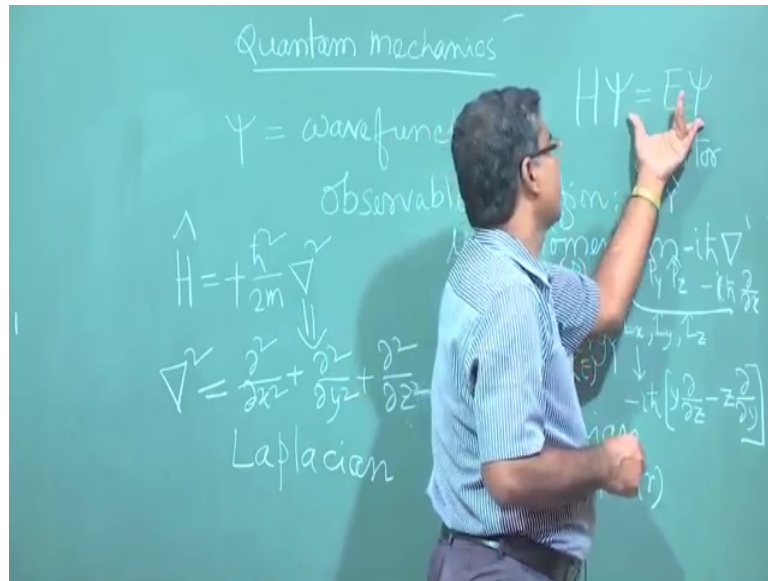 Quantam mechanics
HΨ = EΨ
Ψ = wavefunc
tor
Observabl
Ĥ = + ħ²/2m ∇²
-iħ∇
P_y P_z -iħ ∂/∂x
L_x, L_y, L_z
∇² = ∂²/∂x² + ∂²/∂y² + ∂²/∂z²
-iħ[y ∂/∂z - z ∂/∂y]
Laplacian
(r)